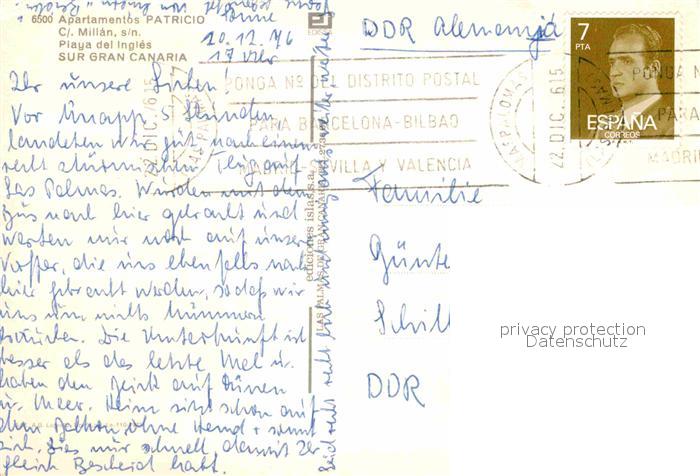 6500 Apartamentos PATRICIO
C/. Millán, s/n.
Playa del Inglés
SUR GRAN CANARIA
Sonne
20.12.76
17 Uhr
DDR Alemania
7
PTA
ESPAÑA
CORREOS
PONGA Nº DEL DISTRITO POSTAL
PARA BARCELONA-BILBAO
MADRID SEVILLA Y VALENCIA
22 DIC. 76 15
LAS PALMAS
PONGA Nº
PARA
MADRID
Ihr unsere Lieben!
Vor knapp 5 Stunden
landeten wir gut nach einem
recht stürmischen Flug auf
Las Palmas. Wurden mit dem
Bus nach hier gebracht und
warten nur noch auf unsere
Koffer, die uns ebenfalls nach
hier gebracht werden, so daß wir
uns um nichts kümmern
brauchen. Die Unterkunft ist
besser als das letzte Mal u.
haben den Blick auf Dünen
u. Meer. Heinz sitzt schon auf
dem Balkon ohne Hemd + sonnt
sich. Dies nur schnell, damit Ihr
gleich Bescheid habt.
Seid recht recht lieb und
ediciones islas, s.a.
LAS PALMAS DE GRAN CANARIA
Familie
Günte
Schill
DDR
privacy protection
Datenschutz